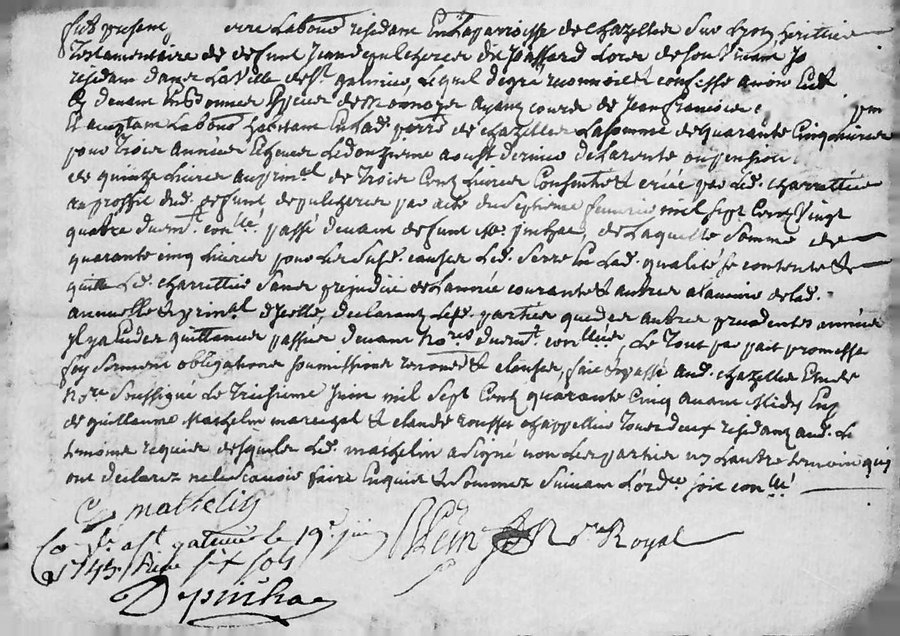 fut present erre Laboureur residant En La parroisse de chazelles Sur Lyon heritier
testamentaire de deffunt Jean depulcherier du passard Lors de Son vivant
residant dans La Ville de St galmier, Lequel degré reconnoist et confesse avoir Eut
Cy devant En Bonnes Especes de Monnoyes ayant cours de Jean francois
Et acceptant Laboureur habitant En Lad. parre de chazelles La Somme de quarante Cinq Livres
pour trois années Echeues Le douzieme aoust dernier de La rente ou pension
de quinze Livres au prinal de trois Cent Livres Constituée et créée par Led. charrettier
au proffit dud. deffunt depulcherier par acte du Septieme fevrier mil Sept Cent Vingt
quatre duemt. conllé. passé devant deffunt Me. de Laquelle Somme de
quarante cinq Livres pour Les Susd. causes Led. Serre En Lad. qualité Se contente et
quitte Led. charrettier Sans prejudice de L'année courante et autres a L'avenir de Lad.
annuelle et prinal d'Icelle, declarant Lesd. parties que des autres precedentes années
Il y a Eu des quittances passées devant Nores duemt. conllées, Le tout par pait promesse
foy Serment obligations Soumissions renoncons et clauses, fait et passé aud. chazelles Etude
Nore Soussigné Le treisieme Juin mil Sept Cent quarante Cinq avant Midy En pce
de guillaume Mathelin marechal et claude rousset chappellier tous deux residants aud. Lieu
temoins requis desquels Led. mathelin a Signé non Les parties ny L'autre temoin qui
ont declarez ne Le Scavoir faire Enquis et Sommez Suivant L'ordce Soit conllé
mathelin
Conlé. a St galmier le 19e. juin Nre Royal
1745. Six sols
Depuihac